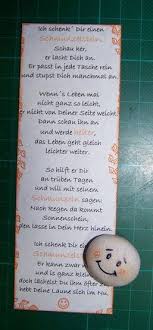 Ich schenk' Dir einen
Schmunzelstein
Schau her,
er lacht Dich an.
Er passt in jede Tasche rein
und stupst Dich manchmal an.
Wenn´s Leben mal
nicht ganz so leicht,
nicht von Deiner Seite weicht
Dann schau ihn an
und werde heiter,
das Leben geht gleich
leichter weiter.
So hilft er Dir
an trüben Tagen
und will mit seinen
Schmunzeln sagen:
Nach Regen da kommt
Sonnenschein,
den lasse in Dein Herz hinein.
Ich schenk Dir
Schmunzelstein
Er kann zwar
und is ganz klein
doch lächelst Du ihm öfter
hebt Deine Laune sich im Nu.